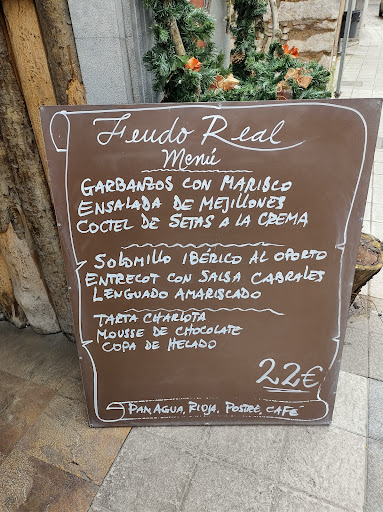 Feudo Real
Menú
GARBANZOS CON MARISCO
ENSALADA DE MEJILLONES
COCTEL DE SETAS A LA CREMA
SOLOMILLO IBÉRICO AL OPORTO
ENTRECOT CON SALSA CABRALES
LENGUADO AMARISCADO
TARTA CHARLOTA
MOUSSE DE CHOCOLATE
COPA DE HELADO
22€
PAN, AGUA, RIOJA, POSTRE, CAFÉ